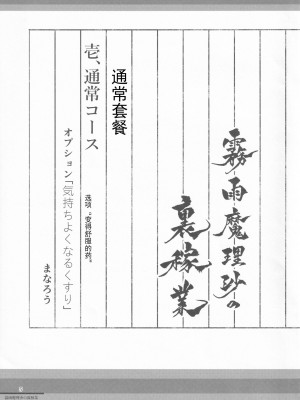 霧雨魔理沙の
裏稼業
通常套餐
壱、通常コース
选项。"变得舒服的药。
オプション「気持ちよくなるくすり」
まなろう